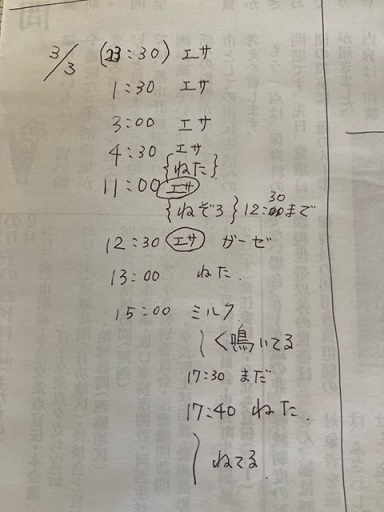 3/3 (23:30) エサ
1:30 エサ
3:00 エサ
4:30 エサ
{ねた}
11:00 エサ
{ねぞろ} 12:30まで
12:30 エサ ガーゼ
13:00 ねた.
15:00 ミルク
く鳴いてる
17:30 まだ
17:40 ねた.
ねてる.